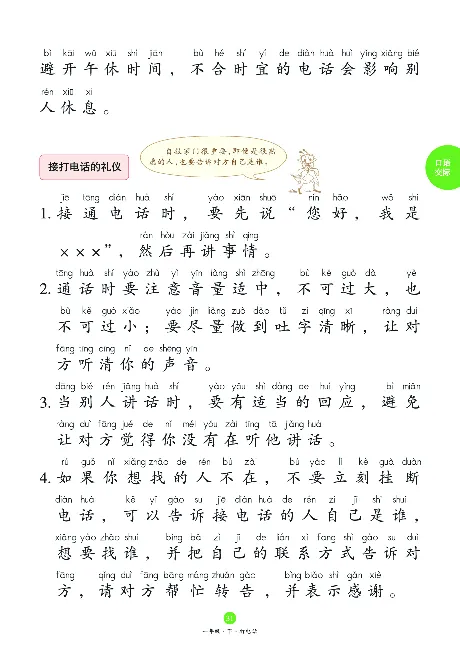 bì kāi wǔ xiū shí jiān bù hé shí yí de diàn huà huì yǐng xiǎng bié
避开午休时间，不合时宜的电话会影响别
rén xiū xi
人休息。
自报家门很重要，即使是很熟
悉的人，也要告诉对方自己是谁。
接打电话的礼仪
口语
交际
jiē tōng diàn huà shí yào xiān shuō nín hǎo wǒ shì
1. 接通电话时，要先说“您好，我是
rán hòu zài jiǎng shì qing
×××”，然后再讲事情。
tōng huà shí yào zhù yì yīn liàng shì zhōng bù kě guò dà yě
2. 通话时要注意音量适中，不可过大，也
bù kě guò xiǎo yào jìn liàng zuò dào tǔ zì qīng xī ràng duì
不可过小；要尽量做到吐字清晰，让对
fāng tīng qīng nǐ de shēng yīn
方听清你的声音。
dāng bié rén jiǎng huà shí yào yǒu shì dàng de huí yìng bì miǎn
3. 当别人讲话时，要有适当的回应，避免
ràng duì fāng jué de nǐ méi yǒu zài tīng tā jiǎng huà
让对方觉得你没有在听他讲话。
rú guǒ nǐ xiǎng zhǎo de rén bú zài bú yào lì kè guà duàn
4. 如果你想找的人不在，不要立刻挂断
diàn huà kě yǐ gào su jiē diàn huà de rén zì jǐ shì shuí
电话，可以告诉接电话的人自己是谁，
xiǎng yào zhǎo shuí bìng bǎ zì jǐ de lián xì fāng shì gào su duì
想要找谁，并把自己的联系方式告诉对
fāng qǐng duì fāng bāng máng zhuǎn gào bìng biǎo shì gǎn xiè
方，请对方帮忙转告，并表示感谢。
31